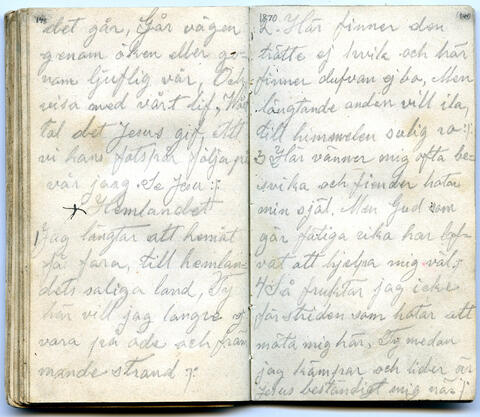 det går, Går vägen
genom öken eller ge-
nom ljuflig vår, Och
visa med vårt lif, Wårt
tal det Jesus gif, Att
vi hans fotspår följa på
vår jaag. Se Jesu :/:
Hemlandet
1 Jag längtar att hemåt
få fara, till hemlan-
dets saliga land, Ty
här vill jag längre ej
vara på öde och främ
mande strand :/:
1870
2. Här finner den
trötte ej hvila och här
finner dufvan ej bo, Men
längtande anden vill ila,
till himmelen salig ro :/:
3 Här vänner mig ofta be-
svika och fiender hatar
min själ. Men Gud som
går fattiga rika har lof-
vat att hjelpa mig väl :/:
4 Så fruktar jag icke
för striden som hotar att
möta mig här. Ty medan
jag kämpar och lider är
Jesus beständigt mig när :/: